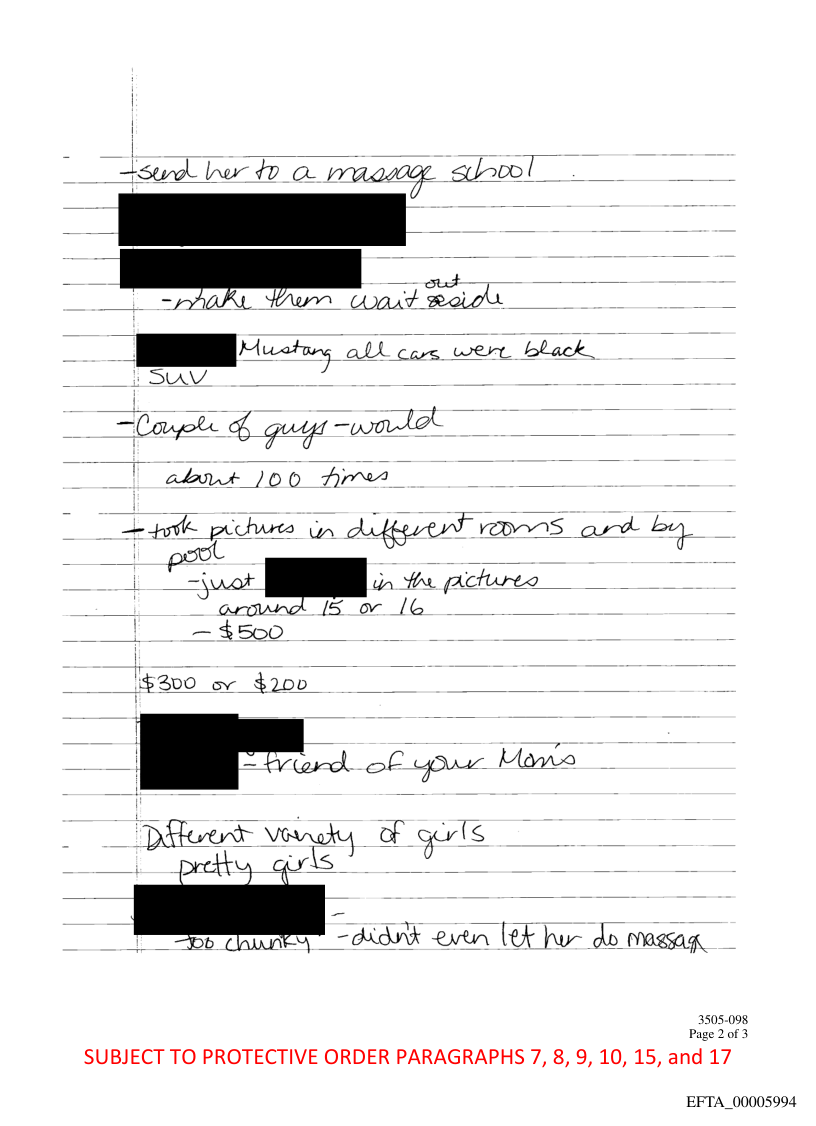 -send her to a massage school
-make them wait outside
Mustang all cars were black
SUV
-Couple of guys -would
about 100 times
- took pictures in different rooms and by
pool
-just in the pictures
around 15 or 16
- $500
$300 or $200
- friend of your Mom's
Different variety of girls
pretty girls
-too chunky -didn't even let her do massage
3505-098
Page 2 of 3
SUBJECT TO PROTECTIVE ORDER PARAGRAPHS 7, 8, 9, 10, 15, and 17
EFTA_00005994